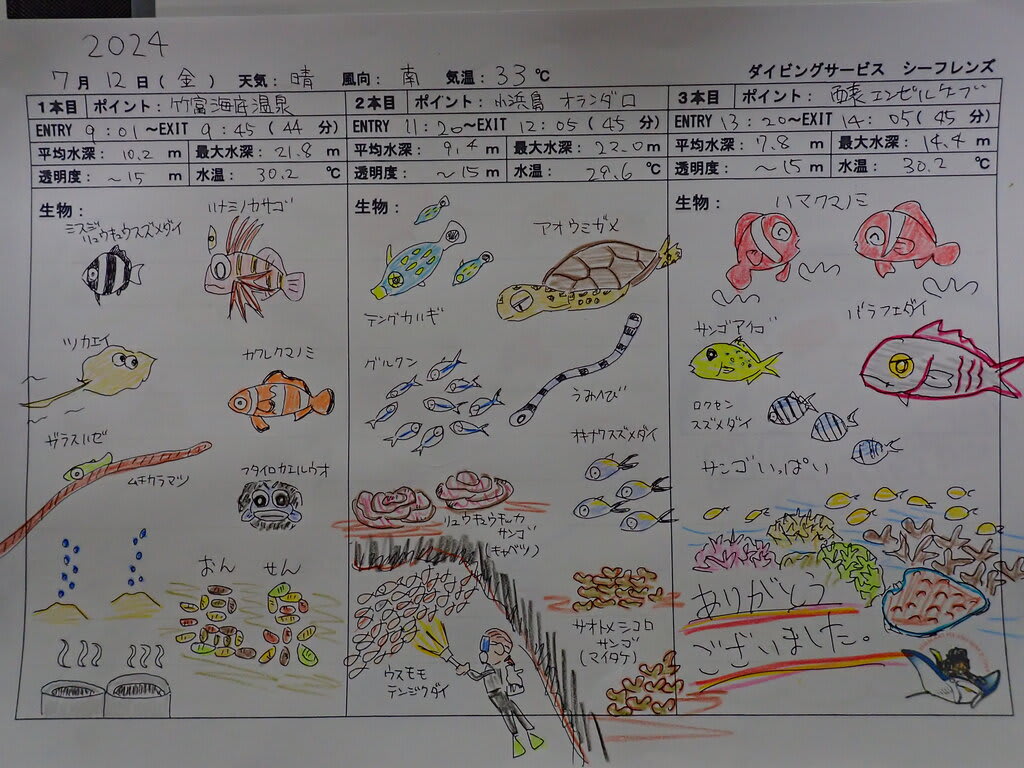 2024
7月 12日(金) 天気: 晴 風向: 南 気温: 33℃
ダイビングサービス シーフレンズ
1本目 ポイント: 竹富海底温泉
ENTRY 9:01~EXIT 9:45(44分)
平均水深: 10.2 m 最大水深: 21.8 m
透明度: ~15 m 水温: 30.2 ℃
生物:
ミスジ
リュウキュウスズメダイ
ハナミノカサゴ
ツカエイ
カクレクマノミ
ガラスハゼ
ムチカラマツ
フタイロカエルウオ
おん せん
2本目 ポイント: 小浜島 オランダロ
ENTRY 11:20~EXIT 12:05(45分)
平均水深: 9.4 m 最大水深: 22.0 m
透明度: ~15 m 水温: 29.6 ℃
生物:
アオウミガメ
テングカハギ
グルクン
うみへび
オキナワスズメダイ
リュウキュウキッカ
サンゴ
(キャベツ)
サオトメシコロ
サンゴ
(マイタケ)
ウスモモ
テンジクダイ
3本目 ポイント: 西表エンゼルケーブ
ENTRY 13:20~EXIT 14:05(45分)
平均水深: 7.8 m 最大水深: 14.4 m
透明度: ~15 m 水温: 30.2 ℃
生物:
ハマクマノミ
サンゴアイゴ
バラフエダイ
ロクセン
スズメダイ
サンゴいっぱい
ありがとう
ございました。